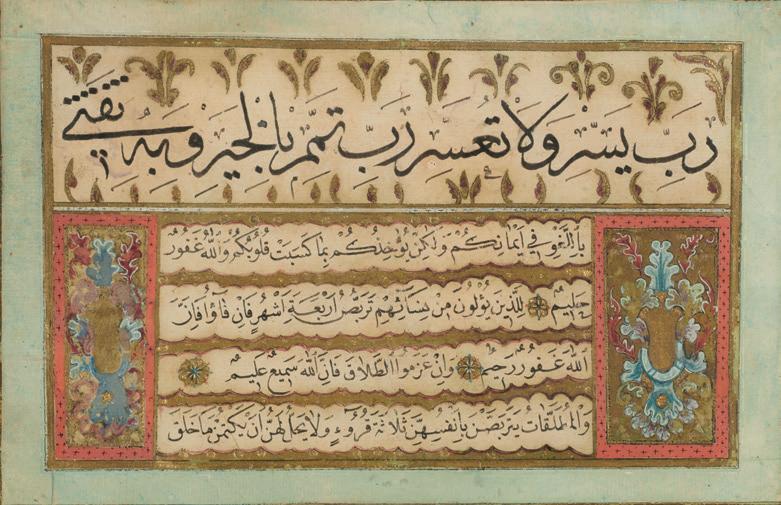 رَبِّ يَسِّرْ وَلَا تُعَسِّرْ رَبِّ تَمِّمْ بِالْخَيْرِ وَبِهِ ثِقَتِي
بِاللَّغْوِ فِي أَيْمَانِكُمْ وَلَكِنْ يُؤَاخِذُكُمْ بِمَا كَسَبَتْ قُلُوبُكُمْ وَاللَّهُ غَفُورٌ
حَلِيمٌ لِلَّذِينَ يُؤْلُونَ مِنْ نِسَائِهِمْ تَرَبُّصُ أَرْبَعَةِ أَشْهُرٍ فَإِنْ فَاؤُا فَإِنَّ
اللَّهَ غَفُورٌ رَحِيمٌ وَإِنْ عَزَمُوا الطَّلَاقَ فَإِنَّ اللَّهَ سَمِيعٌ عَلِيمٌ
وَالْمُطَلَّقَاتُ يَتَرَبَّصْنَ بِأَنْفُسِهِنَّ ثَلَاثَةَ قُرُوءٍ وَلَا يَحِلُّ لَهُنَّ أَنْ يَكْتُمْنَ مَا خَلَقَ